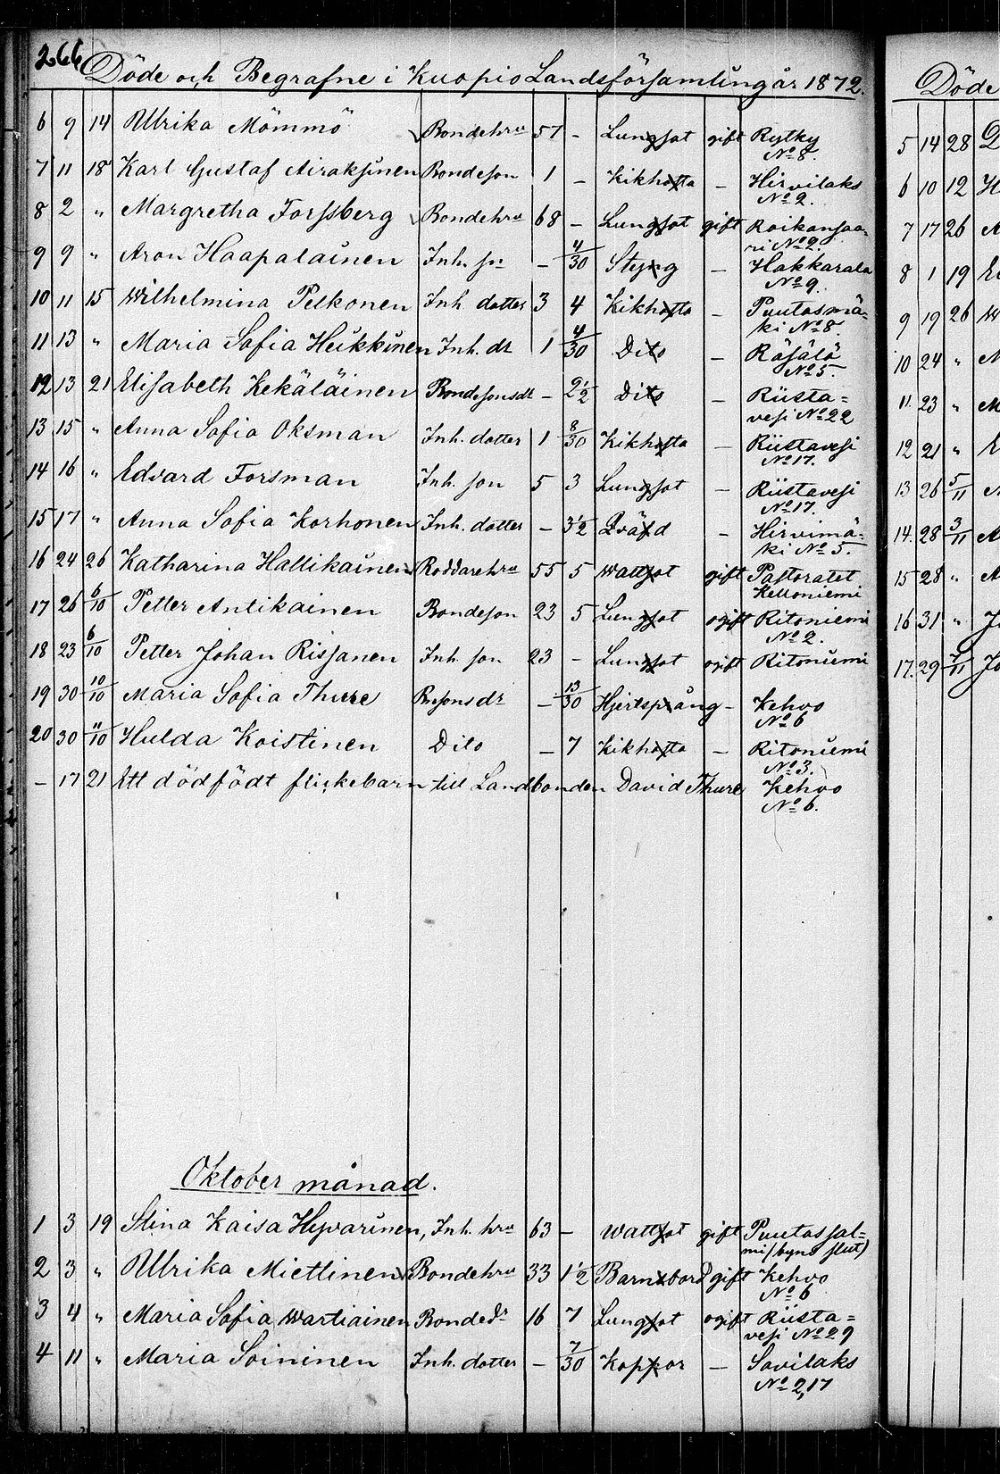 266 Döde och Begrafne i Kuopio Landsförsamling år 1872.
6 9 14 Ulrika Mömmö Bondehru 57 - Lungsot gift Rytky
No 8.
7 11 18 Karl Gustaf Airaksinen Bondeson 1 - Kikhosta - Hirvilaks
No 2.
8 2 " Margretha Forssberg Bondehru 68 - Lungsot gift Roikansaa-
ri No 2.
9 9 " Aron Haapalainen Inh. sn - 4/30 Styng - Hakkarala
No 9.
10 11 15 Wilhelmina Pelkonen Inh dotter 3 4 Kikhosta - Puutosmä-
ki No 8
11 13 " Maria Sofia Heikkinen Inh. dr 1 4/30 Dito - Räsälä
No 5.
12 13 21 Elisabeth Kekäläinen Bondesonsdr - 2 1/2 Dito - Riista=
vesi No 22
13 15 " Anna Sofia Oksman Inh. dotter 1 8/30 Kikhosta - Riistavesi
No 17.
14 16 " Edvard Forsman Inh. son 5 3 Lungsot - Riistavesi
No 17.
15 17 " Anna Sofia Korhonen Inh. dotter - 3 1/2 Qväfd - Hirvimä-
ki No 5.
16 24 26 Katharina Hallikainen Roddarehru 55 5 Wattsot gift Pastoratet
Kelloniemi
17 26 6/10 Petter Antikainen Bondeson 23 5 Lungsot ogift Ritoniemi
No 2.
18 23 6/10 Petter Johan Rissanen Inh son 23 - Lungsot ogift Ritoniemi
19 30 10/10 Maria Sofia Thure Bsonsdr - 13/30 Hjertsprång - Kehvo
No 6
20 30 11/10 Hulda Koistinen Dito - 7 Kikhosta - Ritoniemi
No 3.
- 17 21 Ett dödfödt flickebarn till Landbonden David Thure Kehvo
No 6.
Oktober månad.
1 3 19 Stina Kaisa Hyvärinen, Inh. hru 63 - Wattsot gift Puutossal=
mi (byns slut)
2 3 " Ulrika Miettinen Bondehru 33 1 1/2 Barnsbörd gift Kehvo
No 6
3 4 " Maria Sofia Wartiainen Bondedr 16 7 Lungsot ogift Riista=
vesi No 29
4 11 " Maria Soininen Inh. dotter - 7/30 Koppor - Savilaks
No 2, 17
Döde
5 14 28
6 10 12
7 17 26
8 1 19
9 19 26
10 24 "
11. 23 "
12 21 "
13 26 5/11
14. 28 3/11
15 28 "
16 31 "
17. 29